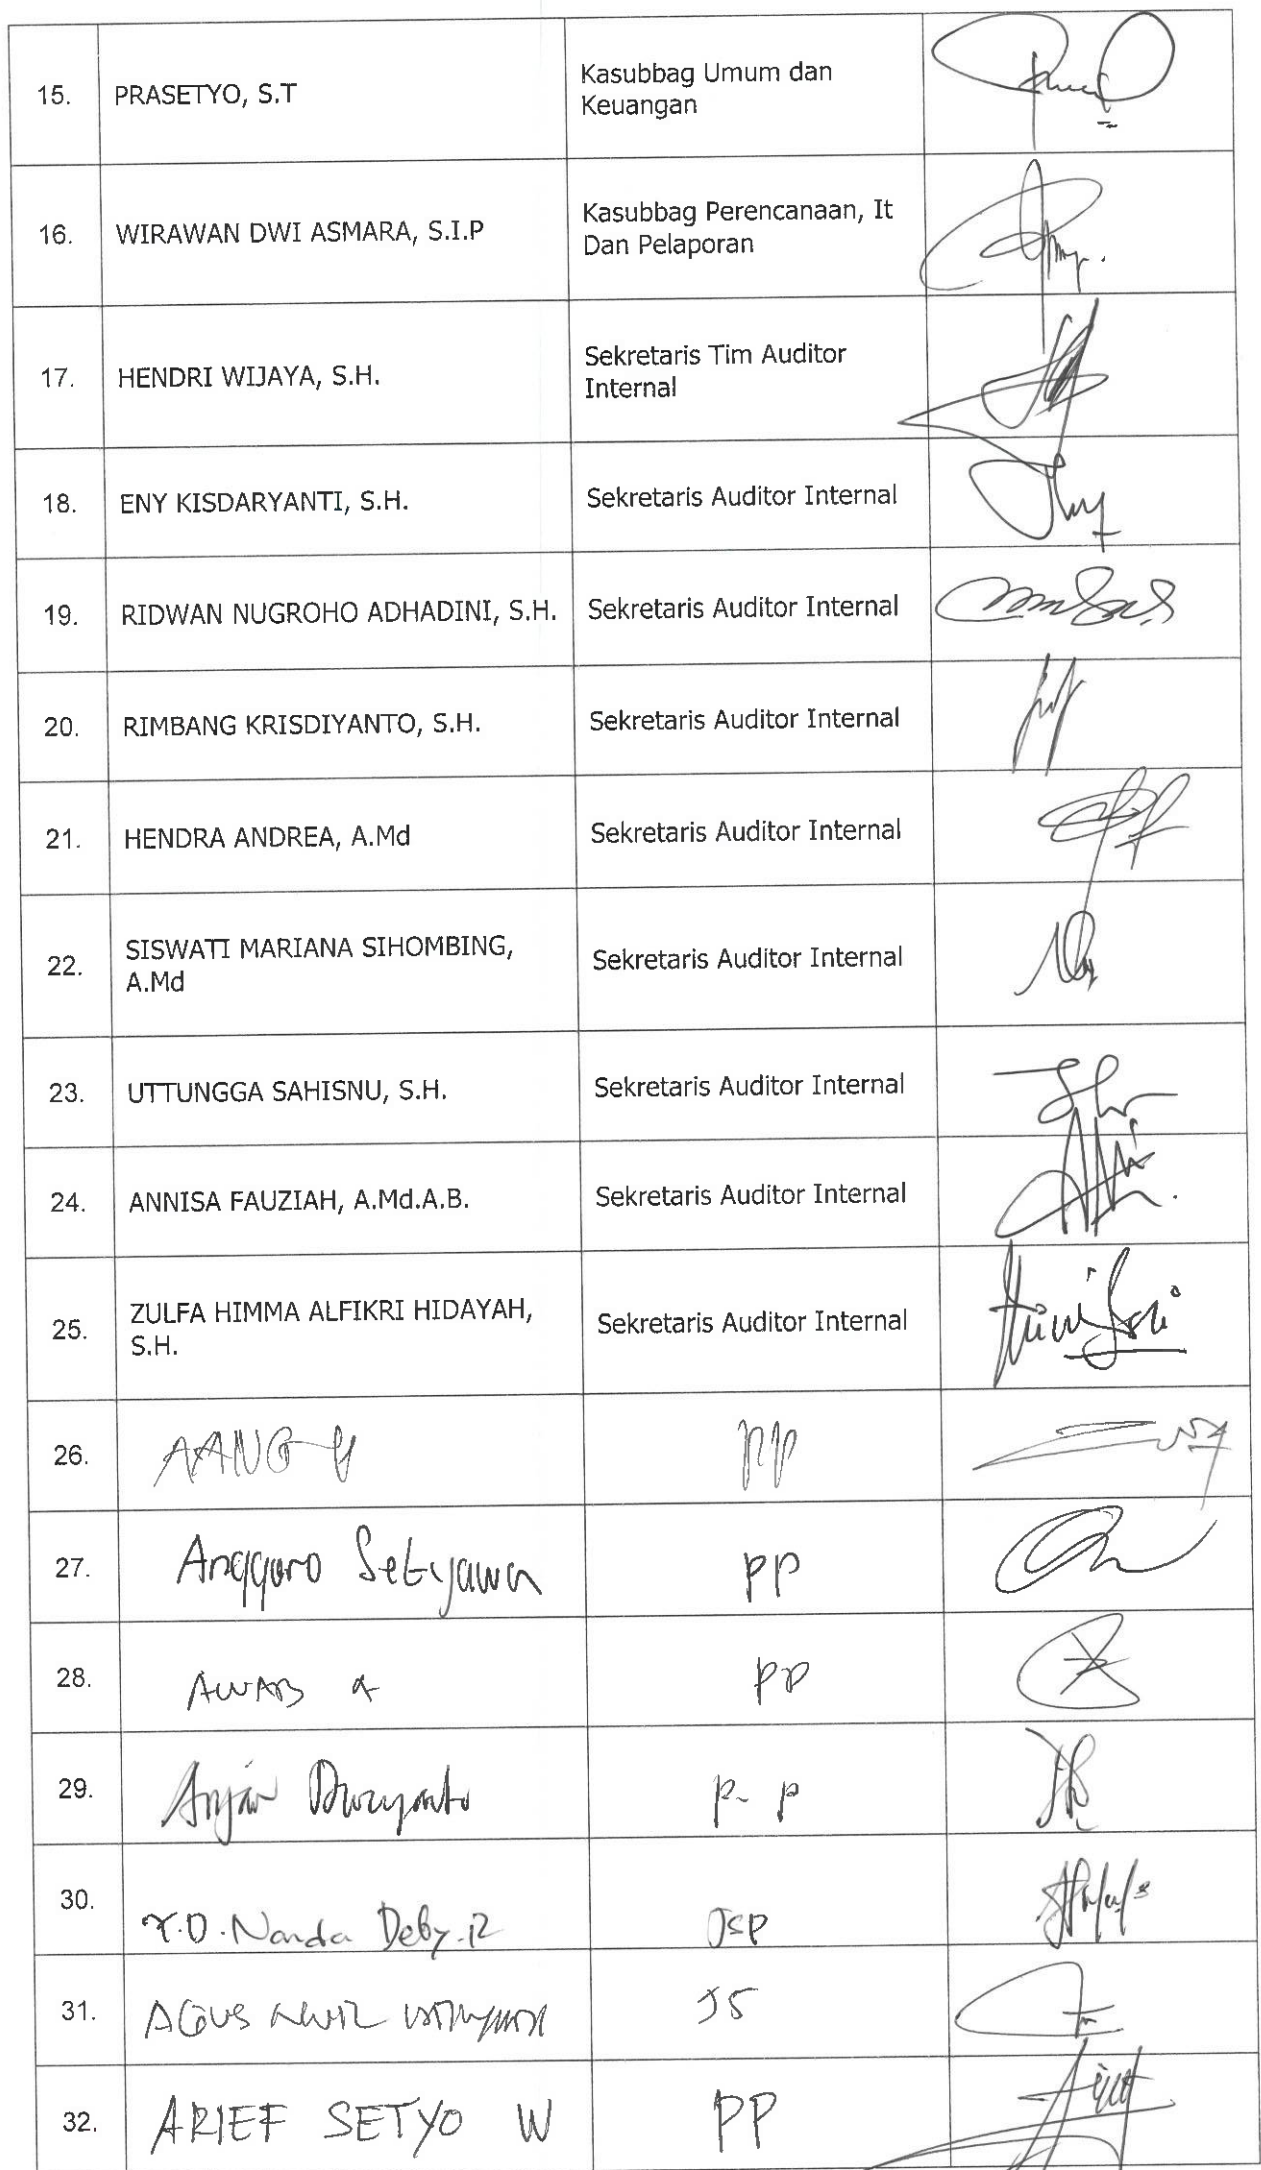 15. PRASETYO, S.T Kasubbag Umum dan
Keuangan
16. WIRAWAN DWI ASMARA, S.I.P Kasubbag Perencanaan, It
Dan Pelaporan
17. HENDRI WIJAYA, S.H. Sekretaris Tim Auditor
Internal
18. ENY KISDARYANTI, S.H. Sekretaris Auditor Internal
19. RIDWAN NUGROHO ADHADINI, S.H. Sekretaris Auditor Internal
20. RIMBANG KRISDIYANTO, S.H. Sekretaris Auditor Internal
21. HENDRA ANDREA, A.Md Sekretaris Auditor Internal
22. SISWATI MARIANA SIHOMBING,
A.Md Sekretaris Auditor Internal
23. UTTUNGGA SAHISNU, S.H. Sekretaris Auditor Internal
24. ANNISA FAUZIAH, A.Md.A.B. Sekretaris Auditor Internal
25. ZULFA HIMMA ALFIKRI HIDAYAH,
S.H. Sekretaris Auditor Internal
26. AANG PP
27. Anggoro Setyawan PP
28. AWAB PP
29. Anjar Dwiyanto P-P
30. Y.D. Nanda Deby.R JSP
31. AGUS JS
32. ARIEF SETYO W PP